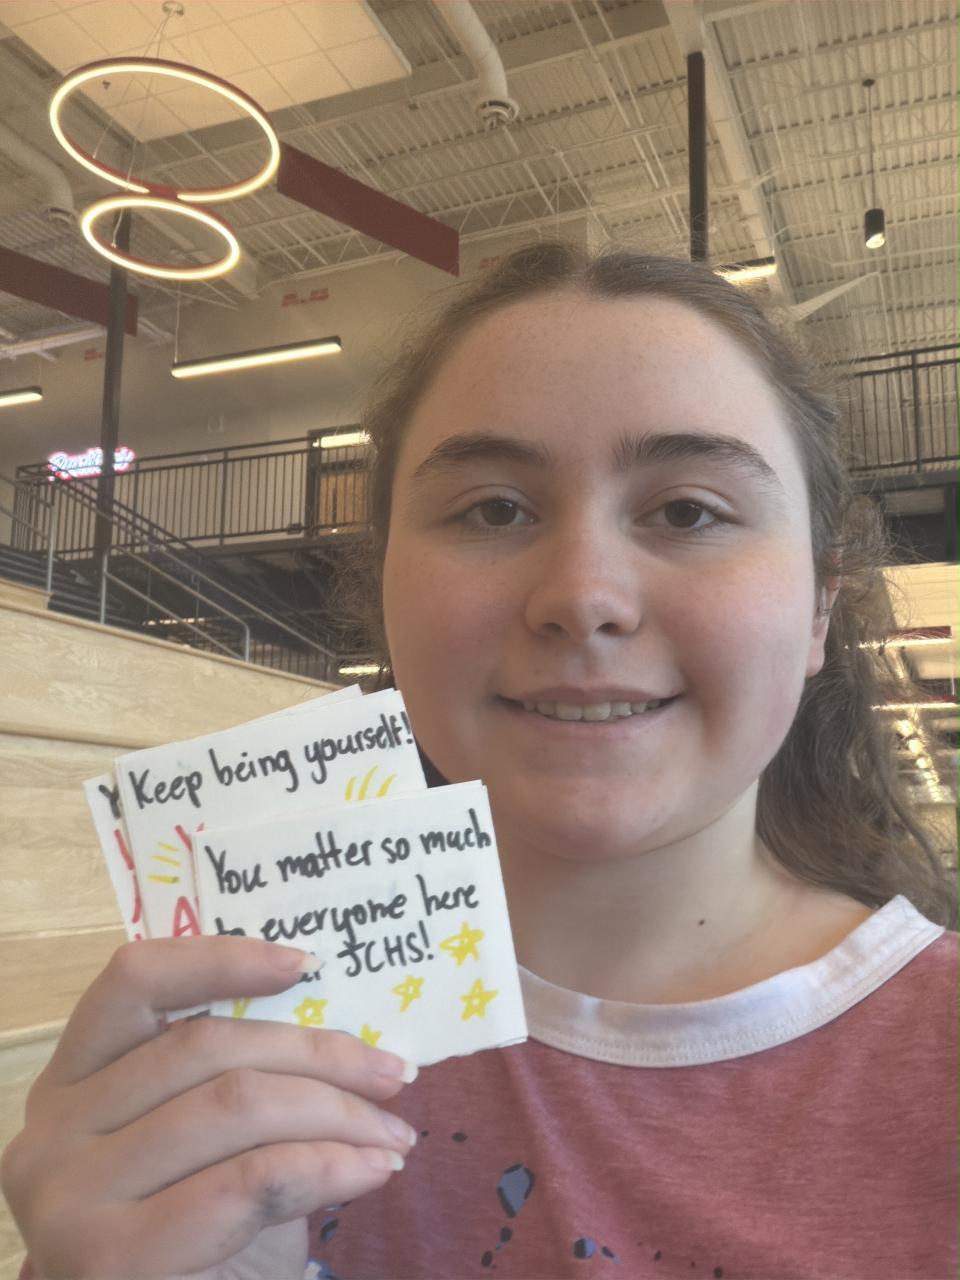 Keep being yourself!
You matter so much
to everyone here
JCHS!